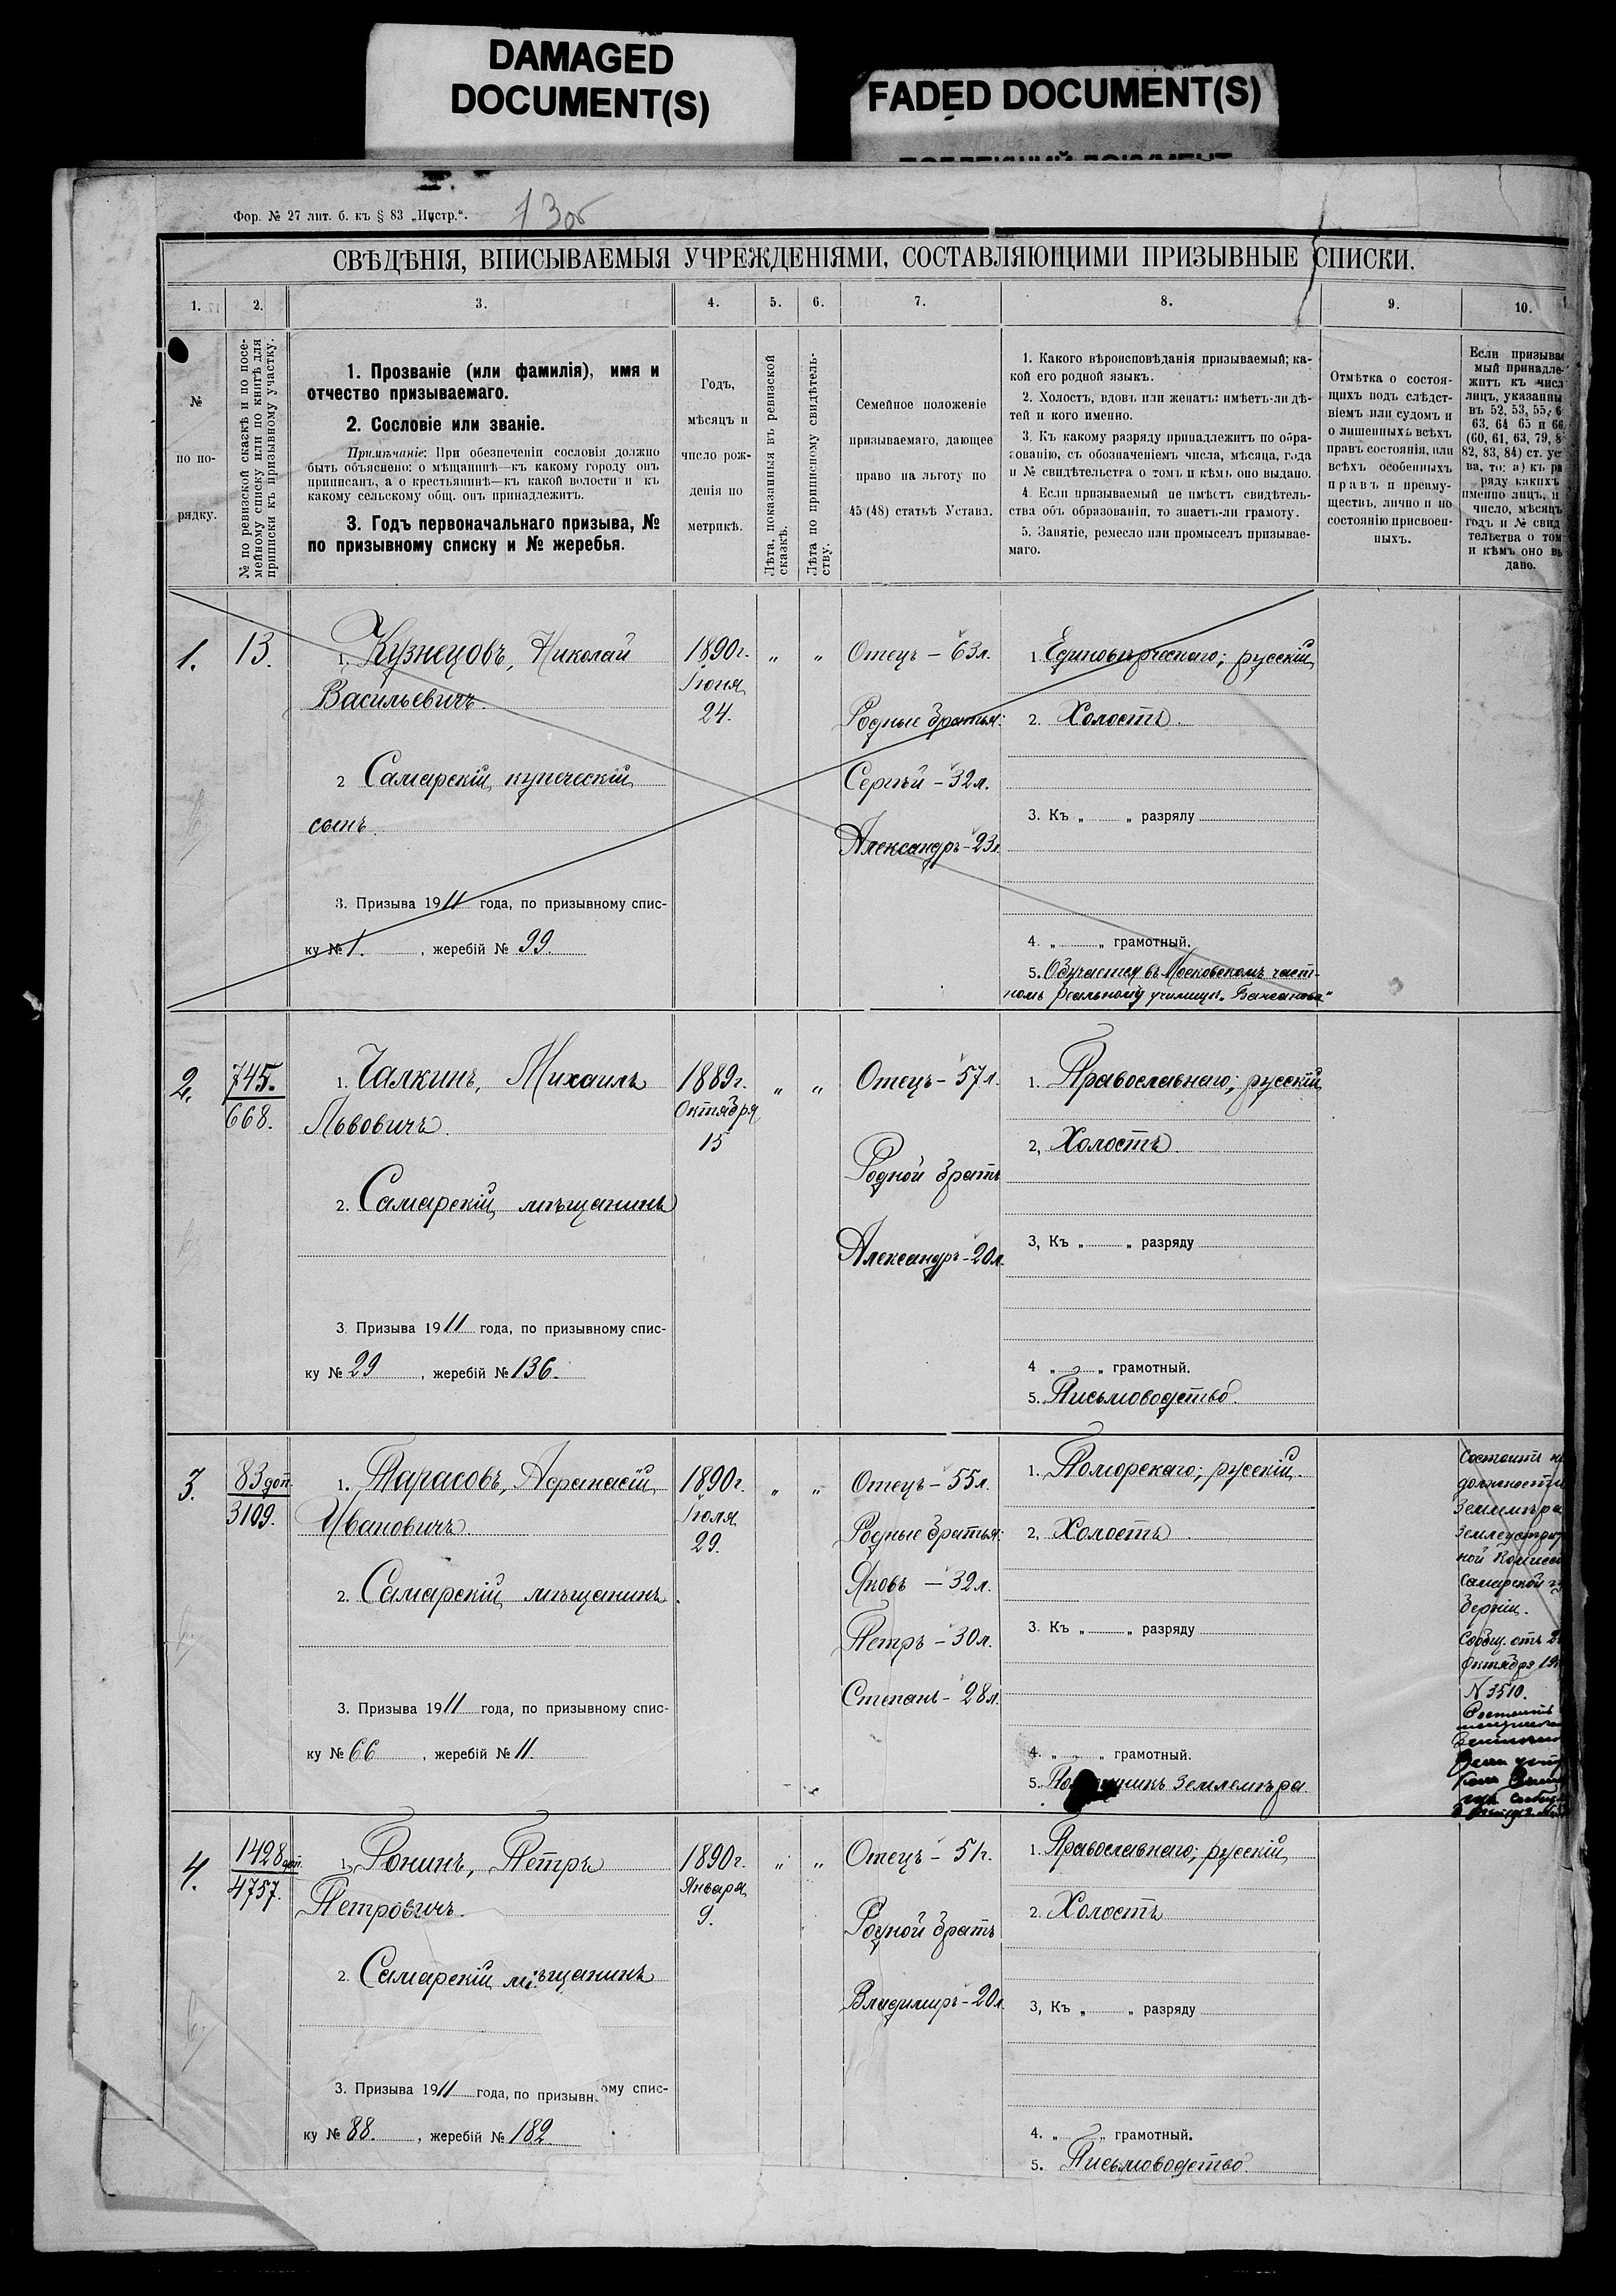 DAMAGED
DOCUMENT(S)
FADED DOCUMENT(S)
Фор. № 27 лит. б. къ § 83 „Инстр.“.
13об
СВѢДѢНІЯ, ВПИСЫВАЕМЫЯ УЧРЕЖДЕНІЯМИ, СОСТАВЛЯЮЩИМИ ПРИЗЫВНЫЕ СПИСКИ.
1. 2. 3. 4. 5. 6. 7. 8. 9. 10.
№
по по-
рядку.
№ по ревизской сказкѣ и по посе-
мейному списку или по книгѣ для
приписки къ призывному участку.
1. Прозваніе (или фамилія), имя и
отчество призываемаго.
2. Сословіе или званіе.
Примѣчаніе: При обезпеченіи сословія должно
быть объяснено: о мѣщанинѣ—къ какому городу онъ
приписанъ, а о крестьянинѣ—къ какой волости и къ
какому сельскому общ. онъ принадлежитъ.
3. Годъ первоначальнаго призыва, №
по призывному списку и № жеребья.
Годъ,
мѣсяцъ и
число рож-
денія по
метрикѣ.
Лѣта, показанныя въ ревизской
сказкѣ.
Лѣта по приписному свидѣтель-
ству.
Семейное положеніе
призываемаго, дающее
право на льготу по
45 (48) статьѣ Устава.
1. Какого вѣроисповѣданія призываемый; ка-
кой его родной языкъ.
2. Холостъ, вдовъ или женатъ: имѣетъ-ли дѣ-
тей и кого именно.
3. Къ какому разряду принадлежитъ по обра-
зованію, съ обозначеніемъ числа, мѣсяца, года
и № свидѣтельства о томъ и кѣмъ оно выдано.
4. Если призываемый не имѣетъ свидѣтель-
ства объ образованіи, то знаетъ-ли грамоту.
5. Занятіе, ремесло или промыселъ призывае-
маго.
Отмѣтка о состоя-
щихъ подъ слѣдст-
віемъ или судомъ и
о лишенныхъ всѣхъ
правъ состоянія, или
всѣхъ особенныхъ
правъ и преиму-
ществъ, лично и по
состоянію присвоен-
ныхъ.
Если призывае
мый принадле-
житъ къ числ
лицъ, указанны
въ 52, 53, 55, 6
63, 64 65 и 66
(60, 61, 63, 79, 8
82, 83, 84) ст. ус
ва, то: а) къ ра
ряду какихъ
именно лицъ, и
число, мѣсяцъ
годъ и № свид
тельства о том
и кѣмъ оно вы
дано.
1. 13.
1. Кузнецовъ, Николай
Васильевичъ.
2 Самарскій купеческій
сынъ.
3. Призыва 1911 года, по призывному спис-
ку № 1. , жеребій № 99.
1890г.
Іюня
24.
„ „
Отецъ – 63л.
Родные братья:
Сергѣй – 32л.
Александръ – 23л.
1. Единовѣрческаго; русскій
2. Холостъ.
3. Къ „ „ разряду
4. „ „ грамотный.
5. Обучается въ Московскомъ част-
номъ реальному училищѣ
2. 745.
668.
1. Чалкинъ, Михаилъ
Львовичъ.
2. Самарскій мѣщанинъ
3 Призыва 1911 года, по призывному спис-
ку № 29 , жеребій № 136.
1889г.
Октября
15
„ „
Отецъ – 57л.
Родной братъ
Александръ – 20л.
1. Православнаго; русскій
2, Холостъ.
3, Къ „ „ разряду
4 „ „ грамотный.
5. Письмоводство.
3. 83 доп.
3109.
1. Тарасовъ, Афанасій
Ивановичъ.
2. Самарскій мѣщанинъ.
3. Призыва 1911 года, по призывному спис-
ку № 66 , жеребій № 11.
1890г.
Іюля
29.
„ „
Отецъ – 55л.
Родные братья:
Яковъ – 32л.
Петръ – 30л.
Степанъ – 28л.
1. Поморскаго; русскій.
2, Холостъ.
3. Къ „ „ разряду
4. „ „ грамотный.
5. Помощникъ землемѣра.
Состоитъ на
должности
землемѣра
землеустрои
ной Комисс
Самарской гу
берніи.
Сообщ. отъ 2
Октября 19
№ 3510.
4. 1428 доп.
4757.
1. Ронинъ, Петръ
Петровичъ.
2. Самарскій мѣщанинъ
3. Призыва 1911 года, по призывному спис-
ку № 88. , жеребій № 182.
1890г.
Января
9.
„ „
Отецъ – 51г.
Родной братъ
Владимиръ – 20л.
1. Православнаго; русскій
2. Холостъ
3, Къ „ „ разряду
4. „ „ грамотный.
5. Письмоводство.